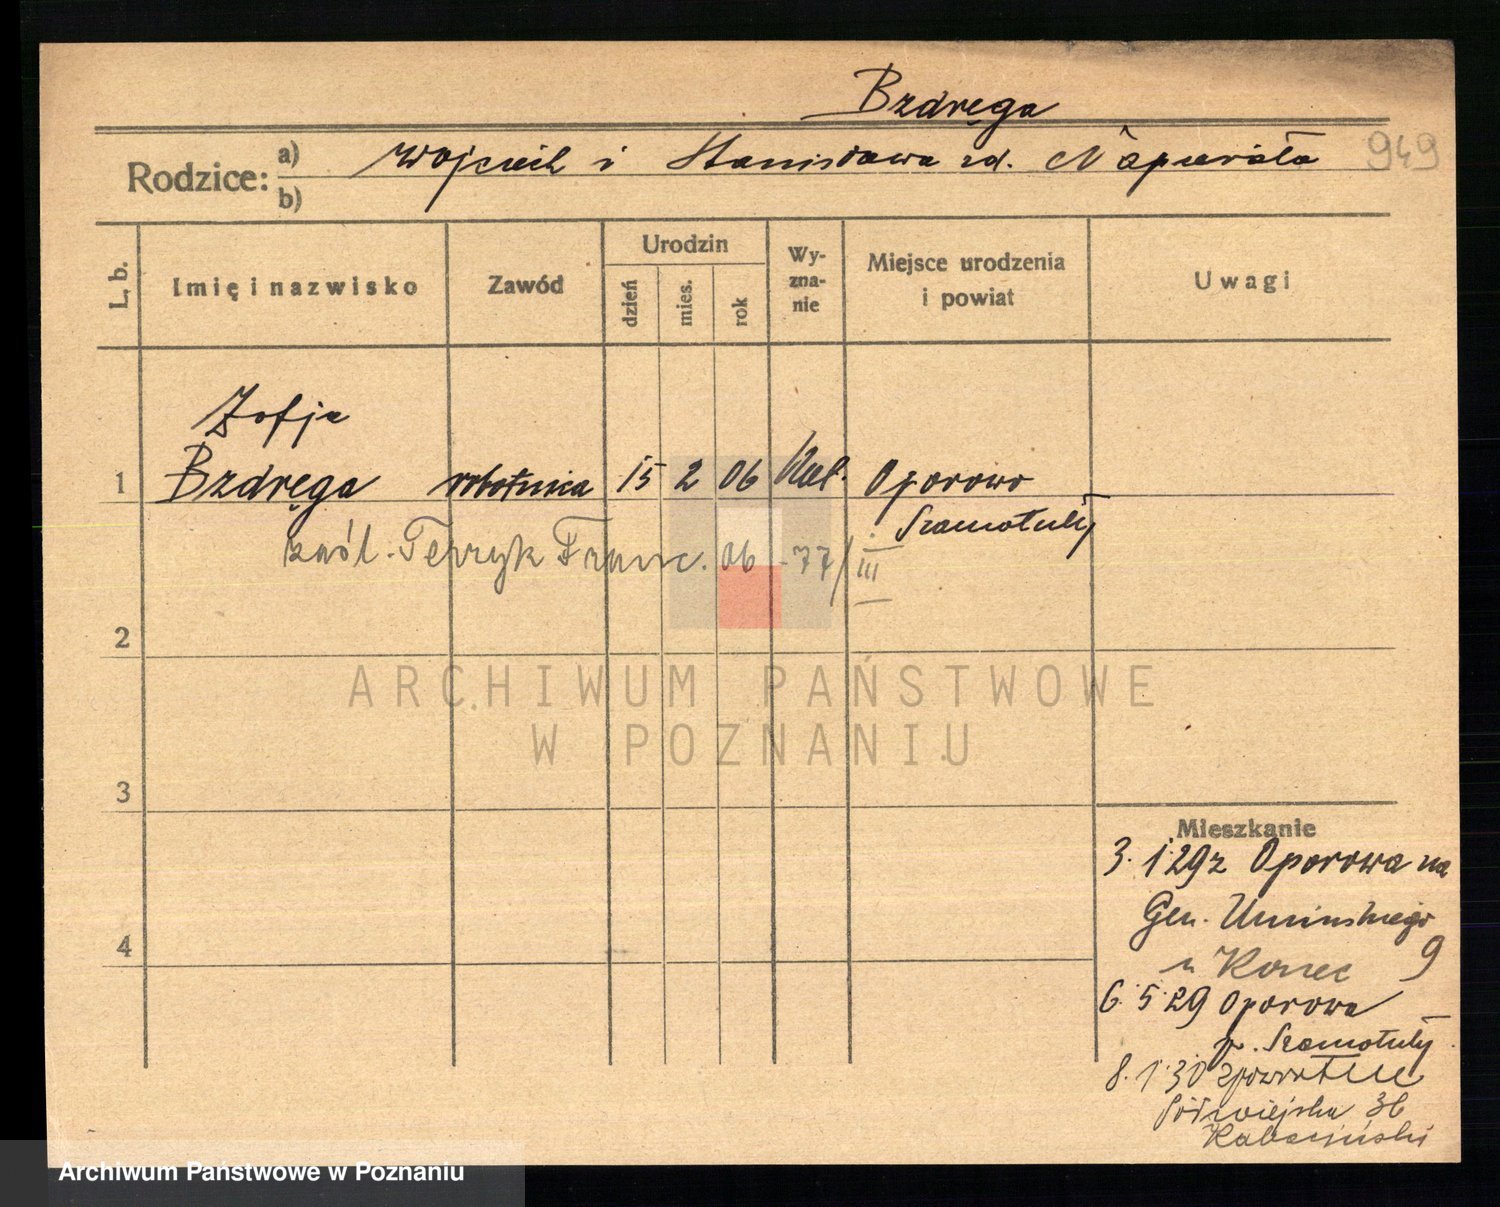 Bzdręga
Rodzice: a) Wojciech i Stanisława zd. Napierała 949
b)
L. b. Imię i nazwisko Zawód Urodzin dzień mies. rok Wyznanie Miejsce urodzenia i powiat Uwagi
Zofja
1 Bzdręga robotnica 15 2 06 Kat. Oporowo
Szamotuły
Franc. 06 -77/III
2
ARCHIWUM PAŃSTWOWE
W POZNANIU
3
Mieszkanie
3.1.29 z Oporowa na
Gen. Umińskiego
u Koniec 9
4
6.5.29 Oporowa
p. Szamotuły
8.1.30 zpowrotem
Półwiejska 36
Archiwum Państwowe w Poznaniu